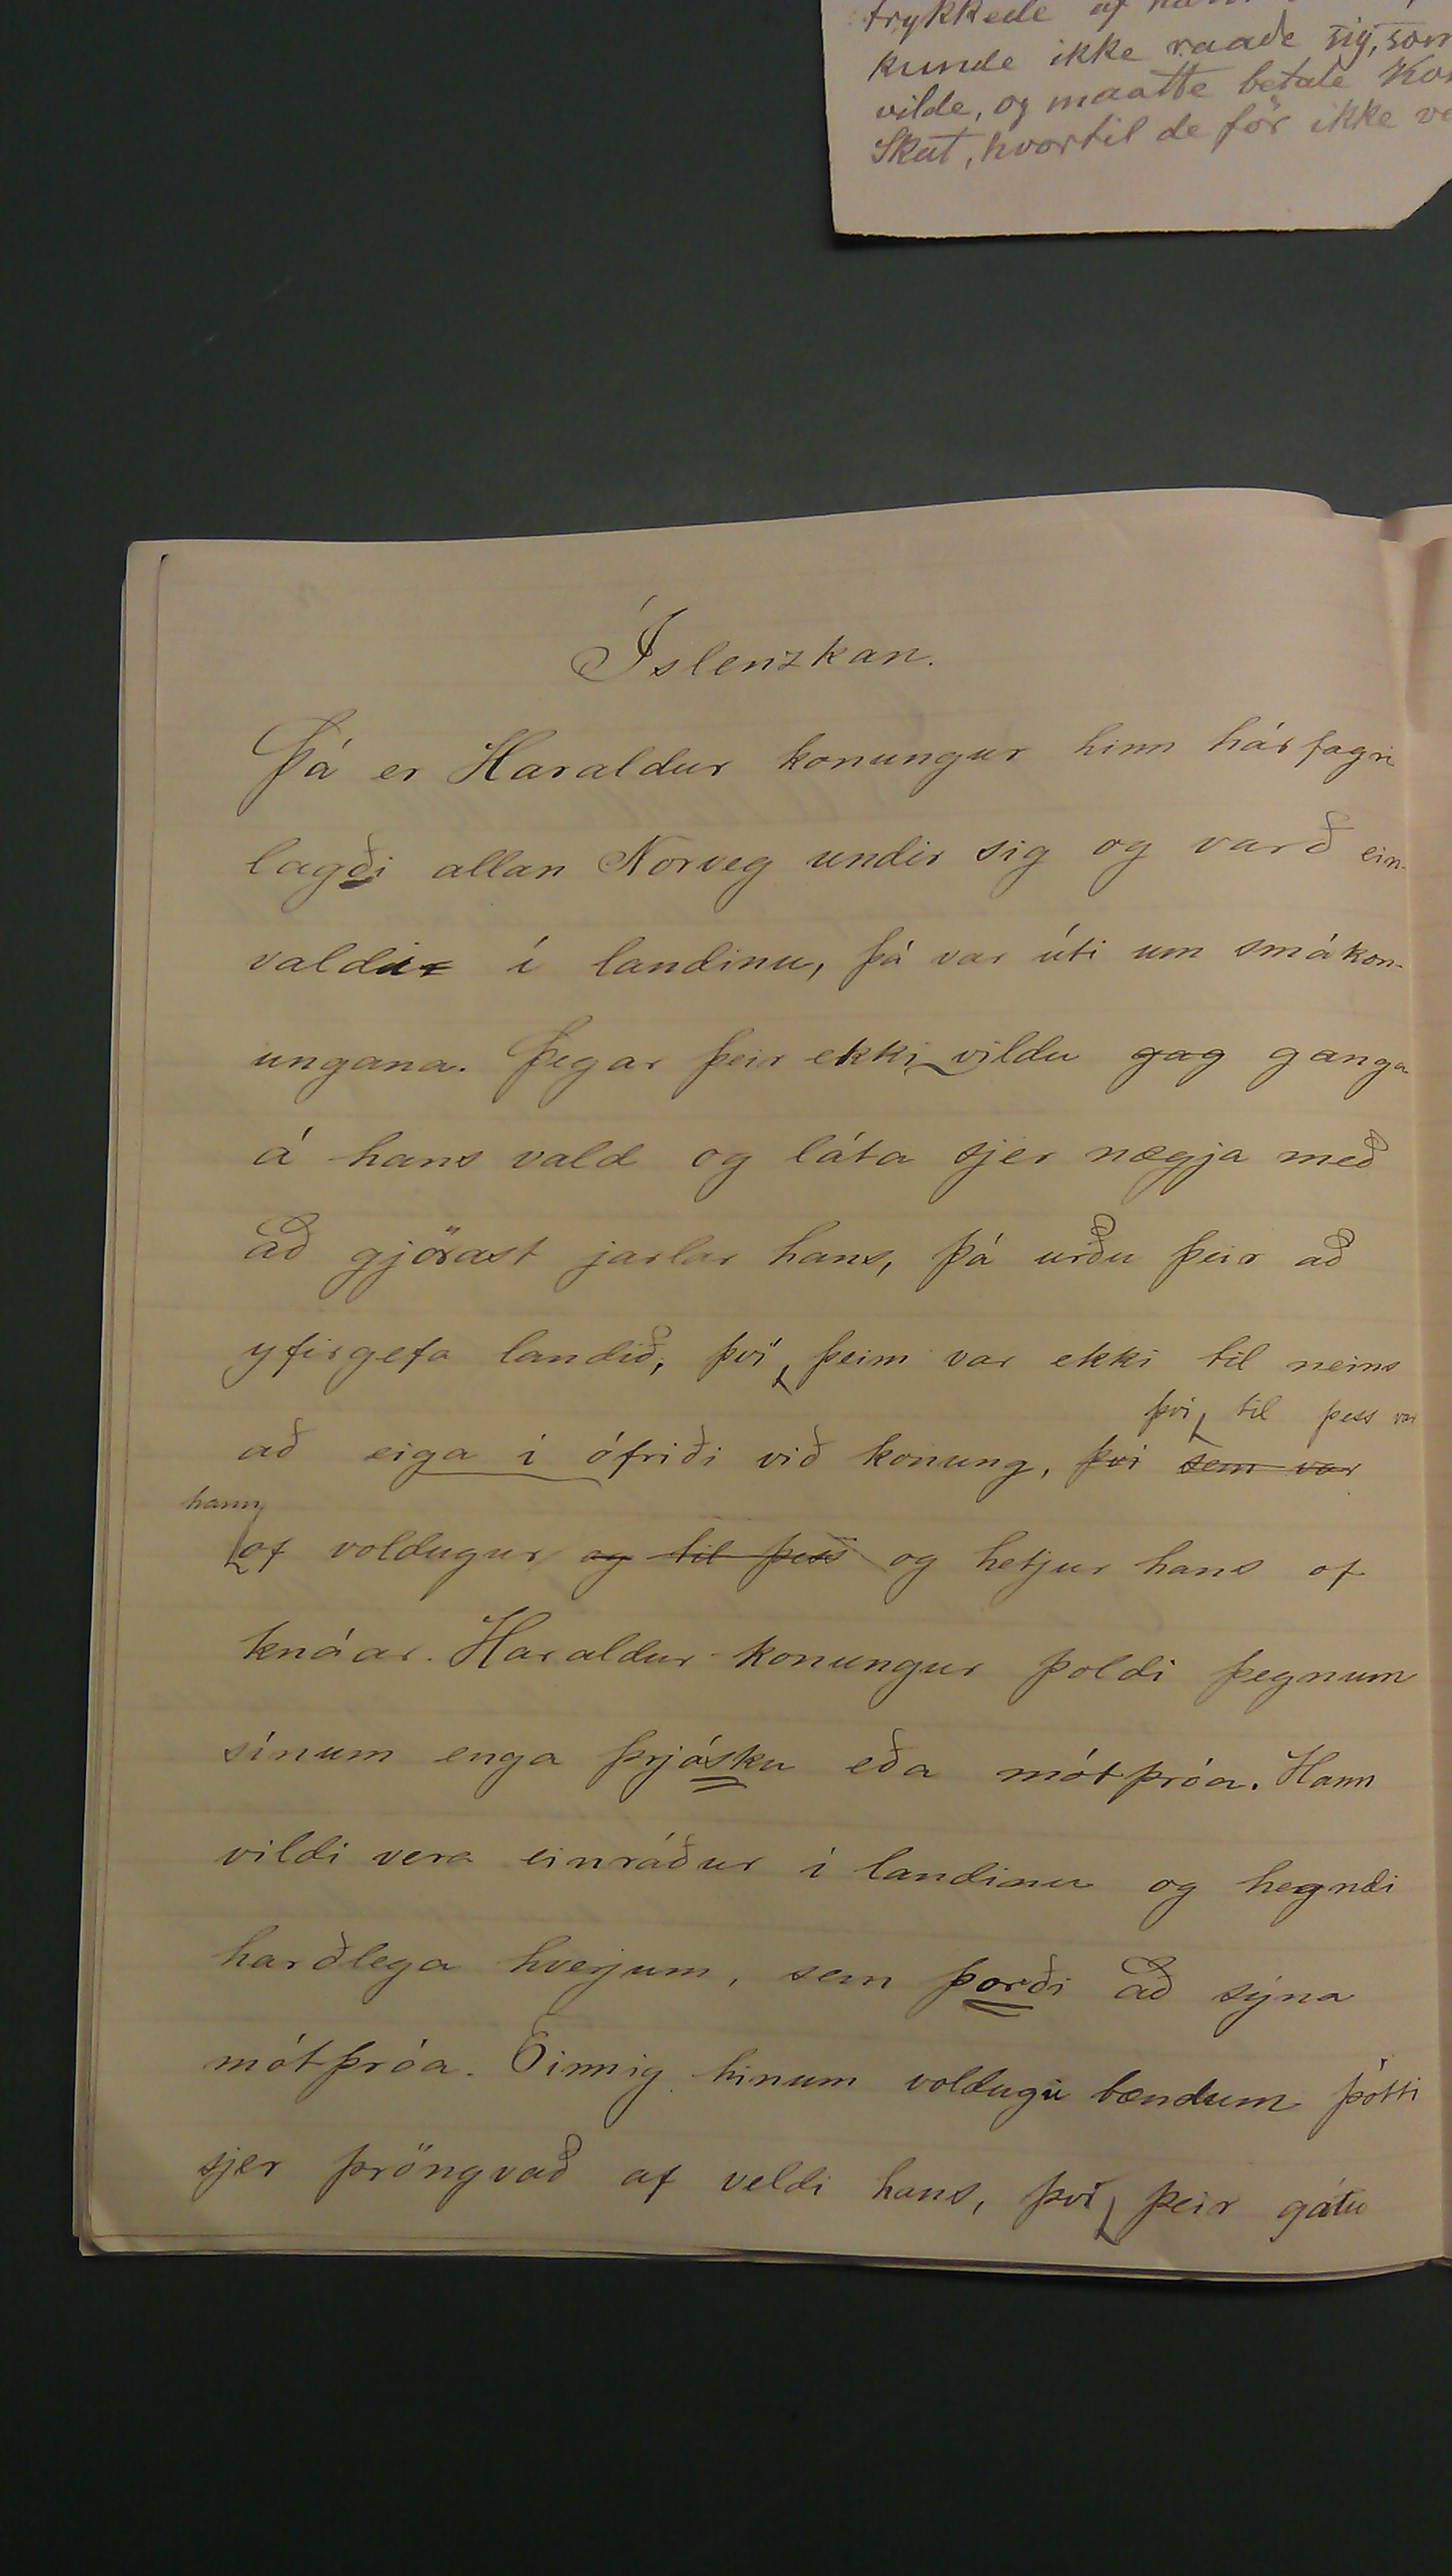 trykkede af
kunde ikke raade sig, som
vilde, og maatte betale
Skat, hvortil de för ikke
Íslenzkan.
Þá er Haraldur konungur hinn hárfagri
lagði allan Norveg undir sig og varð ein-
valdur í landinu, þá var úti um smákon-
ungana. Þegar þeir ekki vildu gag ganga
á hans vald og láta sjer nægja með
að gjörast jarlar hans, þá urðu þeir að
yfirgefa landið, því þeim var ekki til neins
því til þess var
að eiga í ófriði við konung, því sem var
hann
of voldugur og til þess og hetjur hans of
knáar. Haraldur konungur þoldi þegnum
sínum enga þrjásku eða mótþróa. Hann
vildi vera einráður í landinu og hegndi
harðlega hverjum, sem þorði að sýna
mótþróa. Einnig hinum voldugu bændum þótti
sjer þröngvað af veldi hans, því þeir gátu